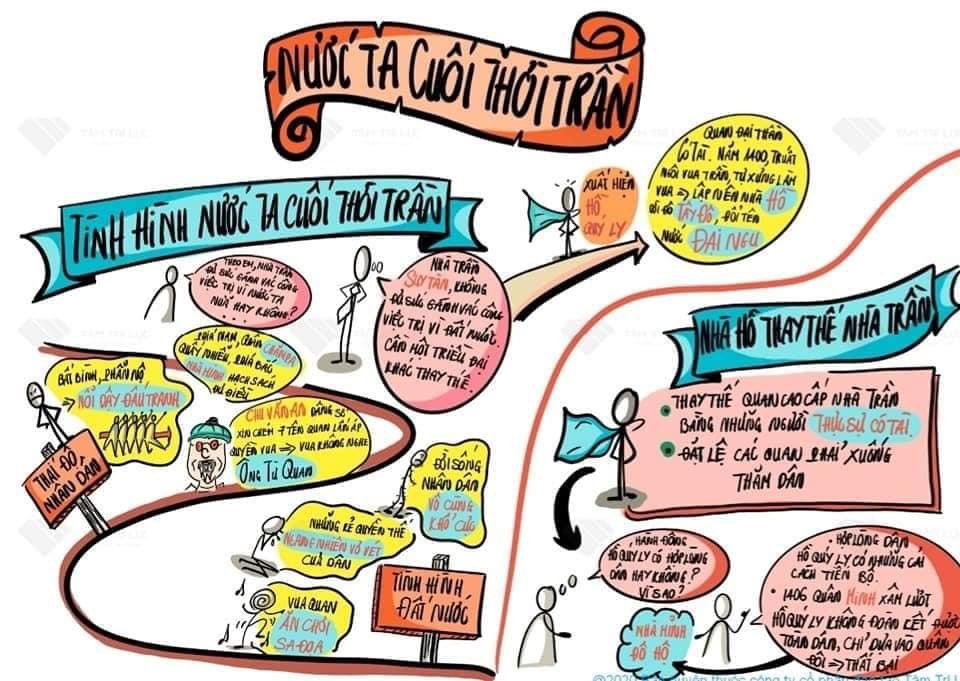 NƯỚC TA CUỐI THỜI TRẦN
TÌNH HÌNH NƯỚC TA CUỐI THỜI TRẦN
THEO EM, NHÀ TRẦN
ĐỦ SỨC GÁNH VÁC CÔNG
VIỆC TRỊ VÌ NƯỚC TA
NỮA HAY KHÔNG?
NHÀ TRẦN
SUY TÀN, KHÔNG
ĐỦ SỨC GÁNH VÁC CÔNG
VIỆC TRỊ VÌ ĐẤT NƯỚC
CẦN MỘT TRIỀU ĐẠI
KHÁC THAY THẾ.
XUẤT HIỆN
HỒ
QUÝ LY
QUAN ĐẠI THẦN
CÓ TÀI. NĂM 1400, TRUẤT
NGÔI VUA TRẦN, TỰ XƯNG LÀM
VUA => LẬP NÊN NHÀ HỒ
DỜI ĐÔ TÂY ĐÔ, ĐỔI TÊN
NƯỚC ĐẠI NGU
PHÍA NAM, QUÂN CHĂMPA
QUẤY NHIỄU, PHÍA BẮC
NHÀ MINH HẠCH SÁCH
ĐỦ ĐIỀU
BẤT BÌNH, PHẪN NỘ
=> NỔI DẬY ĐẤU TRANH
THÁI ĐỘ
NHÂN DÂN
CHU VĂN AN DÂNG SỚ
XIN CHÉM 7 TÊN QUAN LẤN ÁP
QUYỀN VUA => VUA KHÔNG NGHE
ÔNG TỪ QUAN
ĐỜI SỐNG
NHÂN DÂN
VÔ CÙNG
KHỔ CỰC
NHỮNG KẺ QUYỀN THẾ
NGANG NHIÊN VƠ VÉT
CỦA DÂN
VUA QUAN
ĂN CHƠI
SA ĐỌA
TÌNH HÌNH
ĐẤT NƯỚC
NHÀ HỒ THAY THẾ NHÀ TRẦN
THAY THẾ QUAN CAO CẤP NHÀ TRẦN
BẰNG NHỮNG NGƯỜI THỰC SỰ CÓ TÀI.
ĐẶT LỆ CÁC QUAN PHẢI XUỐNG
THĂM DÂN
HÀNH ĐỘNG
HỒ QUÝ LY CÓ HỢP LÒNG
DÂN HAY KHÔNG?
VÌ SAO?
• HỢP LÒNG DÂN
HỒ QUÝ LY CÓ NHỮNG CẢI
CÁCH TIẾN BỘ.
• 1406 QUÂN MINH XÂM LƯỢC
HỒ QUÝ LY KHÔNG ĐOÀN KẾT ĐƯỢC
TOÀN DÂN, CHỈ DỰA VÀO QUÂN
ĐỘI => THẤT BẠI
NHÀ MINH
ĐÔ HỘ
TÂM TRÍ LỰC